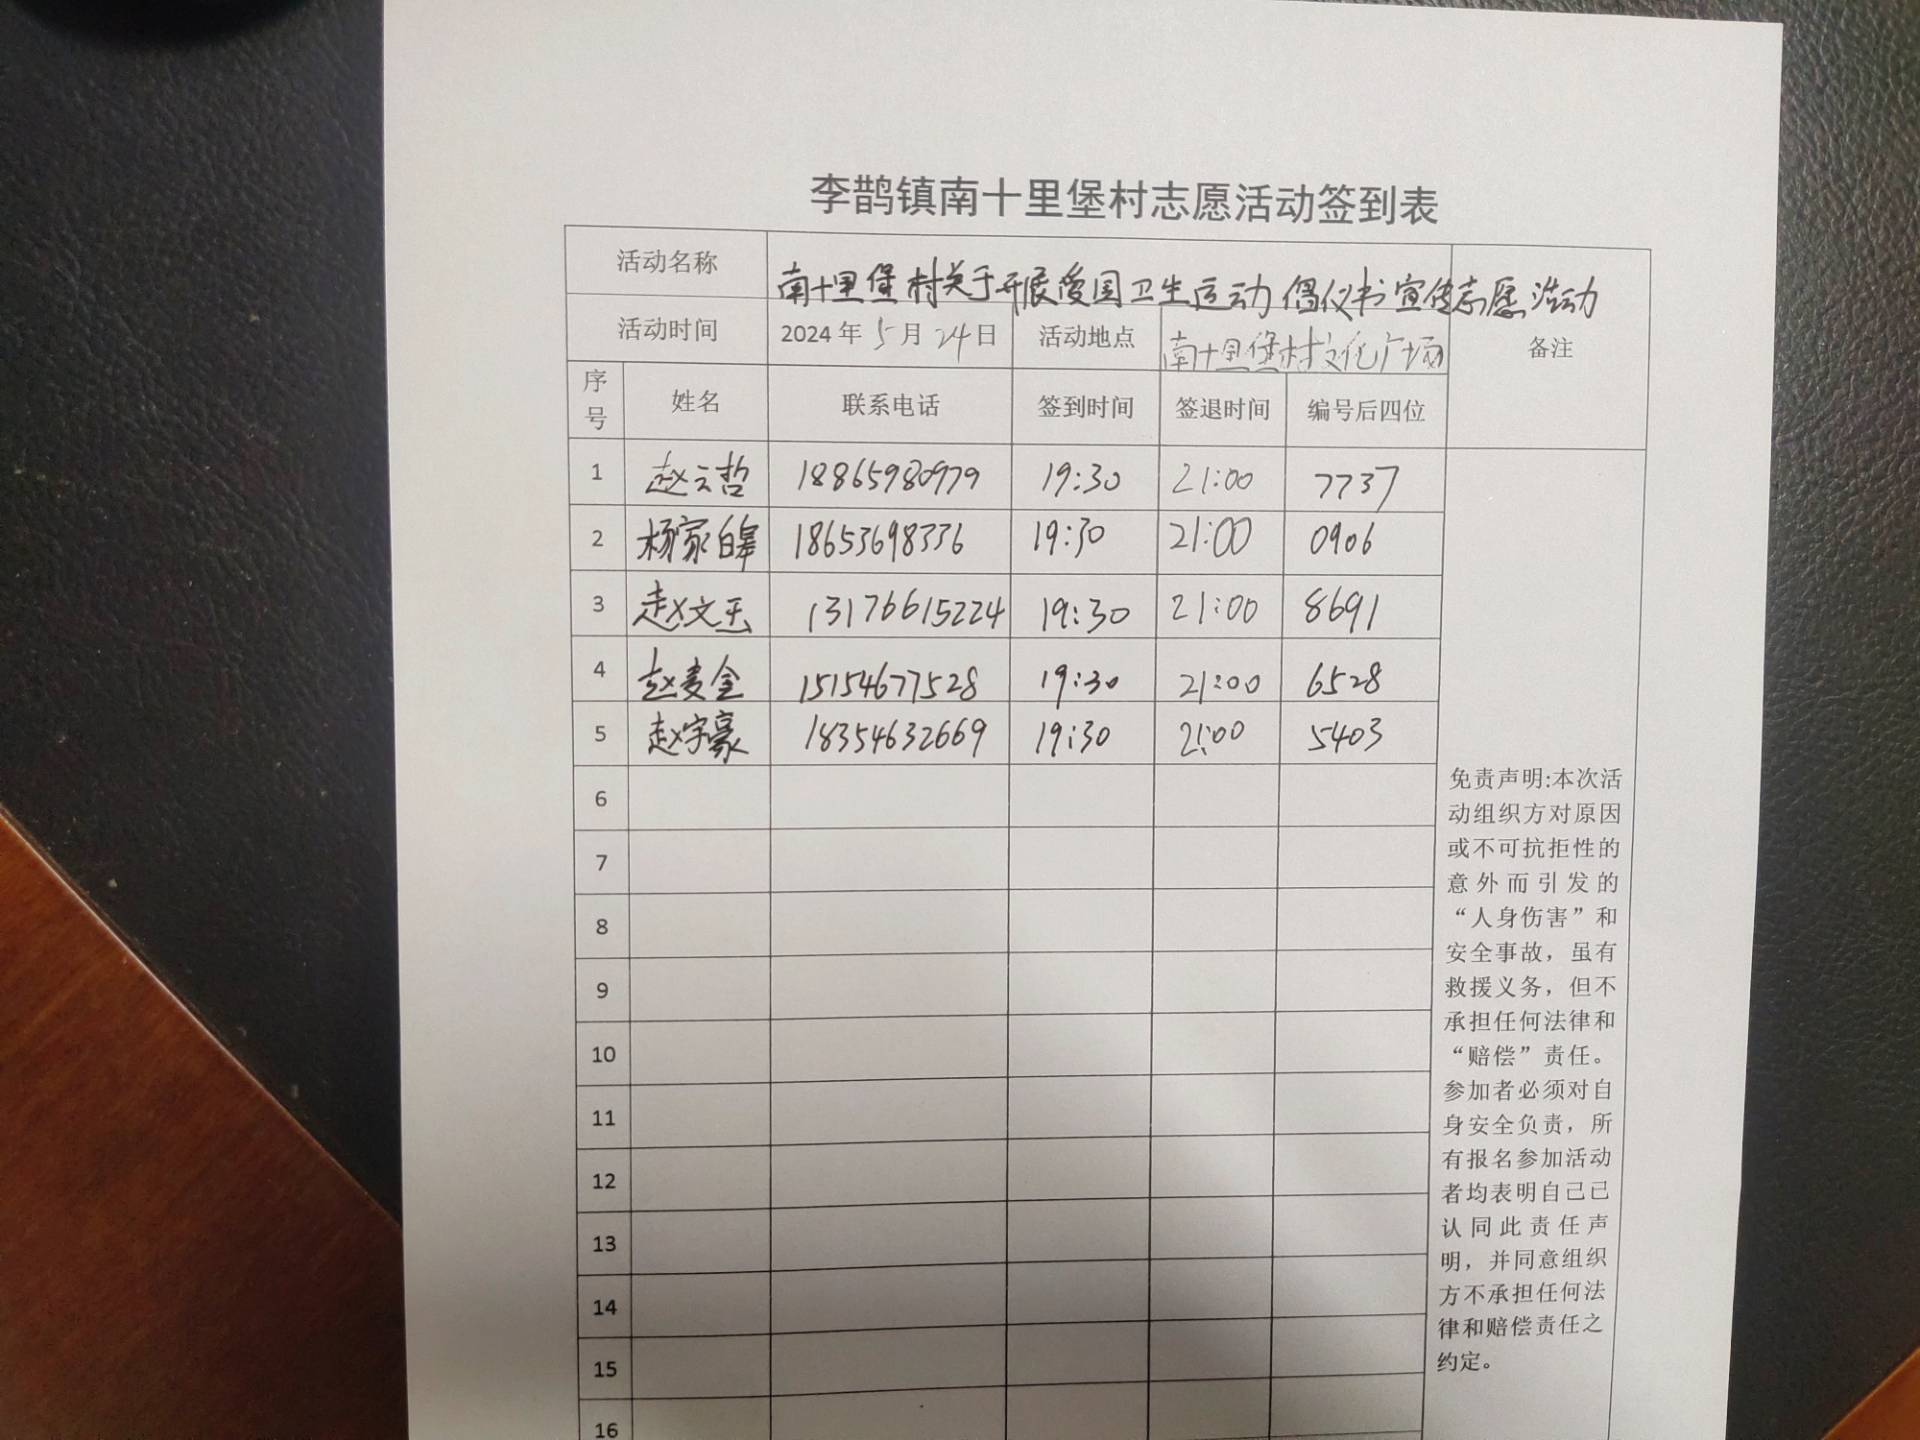 李鹊镇南十里堡村志愿活动签到表
活动名称 南十里堡村关于开展爱国卫生运动倡仪书宣传志愿活动
活动时间 2024年5月24日 活动地点 南十里堡村文化广场 备注
序号 姓名 联系电话 签到时间 签退时间 编号后四位
1 赵云哲 18865980979 19:30 21:00 7737
2 杨家皞 18653698336 19:30 21:00 0906
3 赵文玉 13176615224 19:30 21:00 8691
4 赵麦全 15154677528 19:30 21:00 6528
5 赵宇豪 18354632669 19:30 21:00 5403
6
7
8
9
10
11
12
13
14
15
16
免责声明:本次活
动组织方对原因
或不可抗拒性的
意外而引发的
“人身伤害”和
安全事故，虽有
救援义务，但不
承担任何法律和
“赔偿”责任。
参加者必须对自
身安全负责，所
有报名参加活动
者均表明自己已
认同此责任声
明，并同意组织
方不承担任何法
律和赔偿责任之
约定。